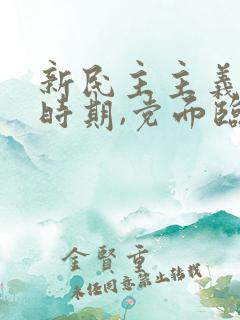 新民主主義
時期,党面臨
金賢重
未经同意禁止转载